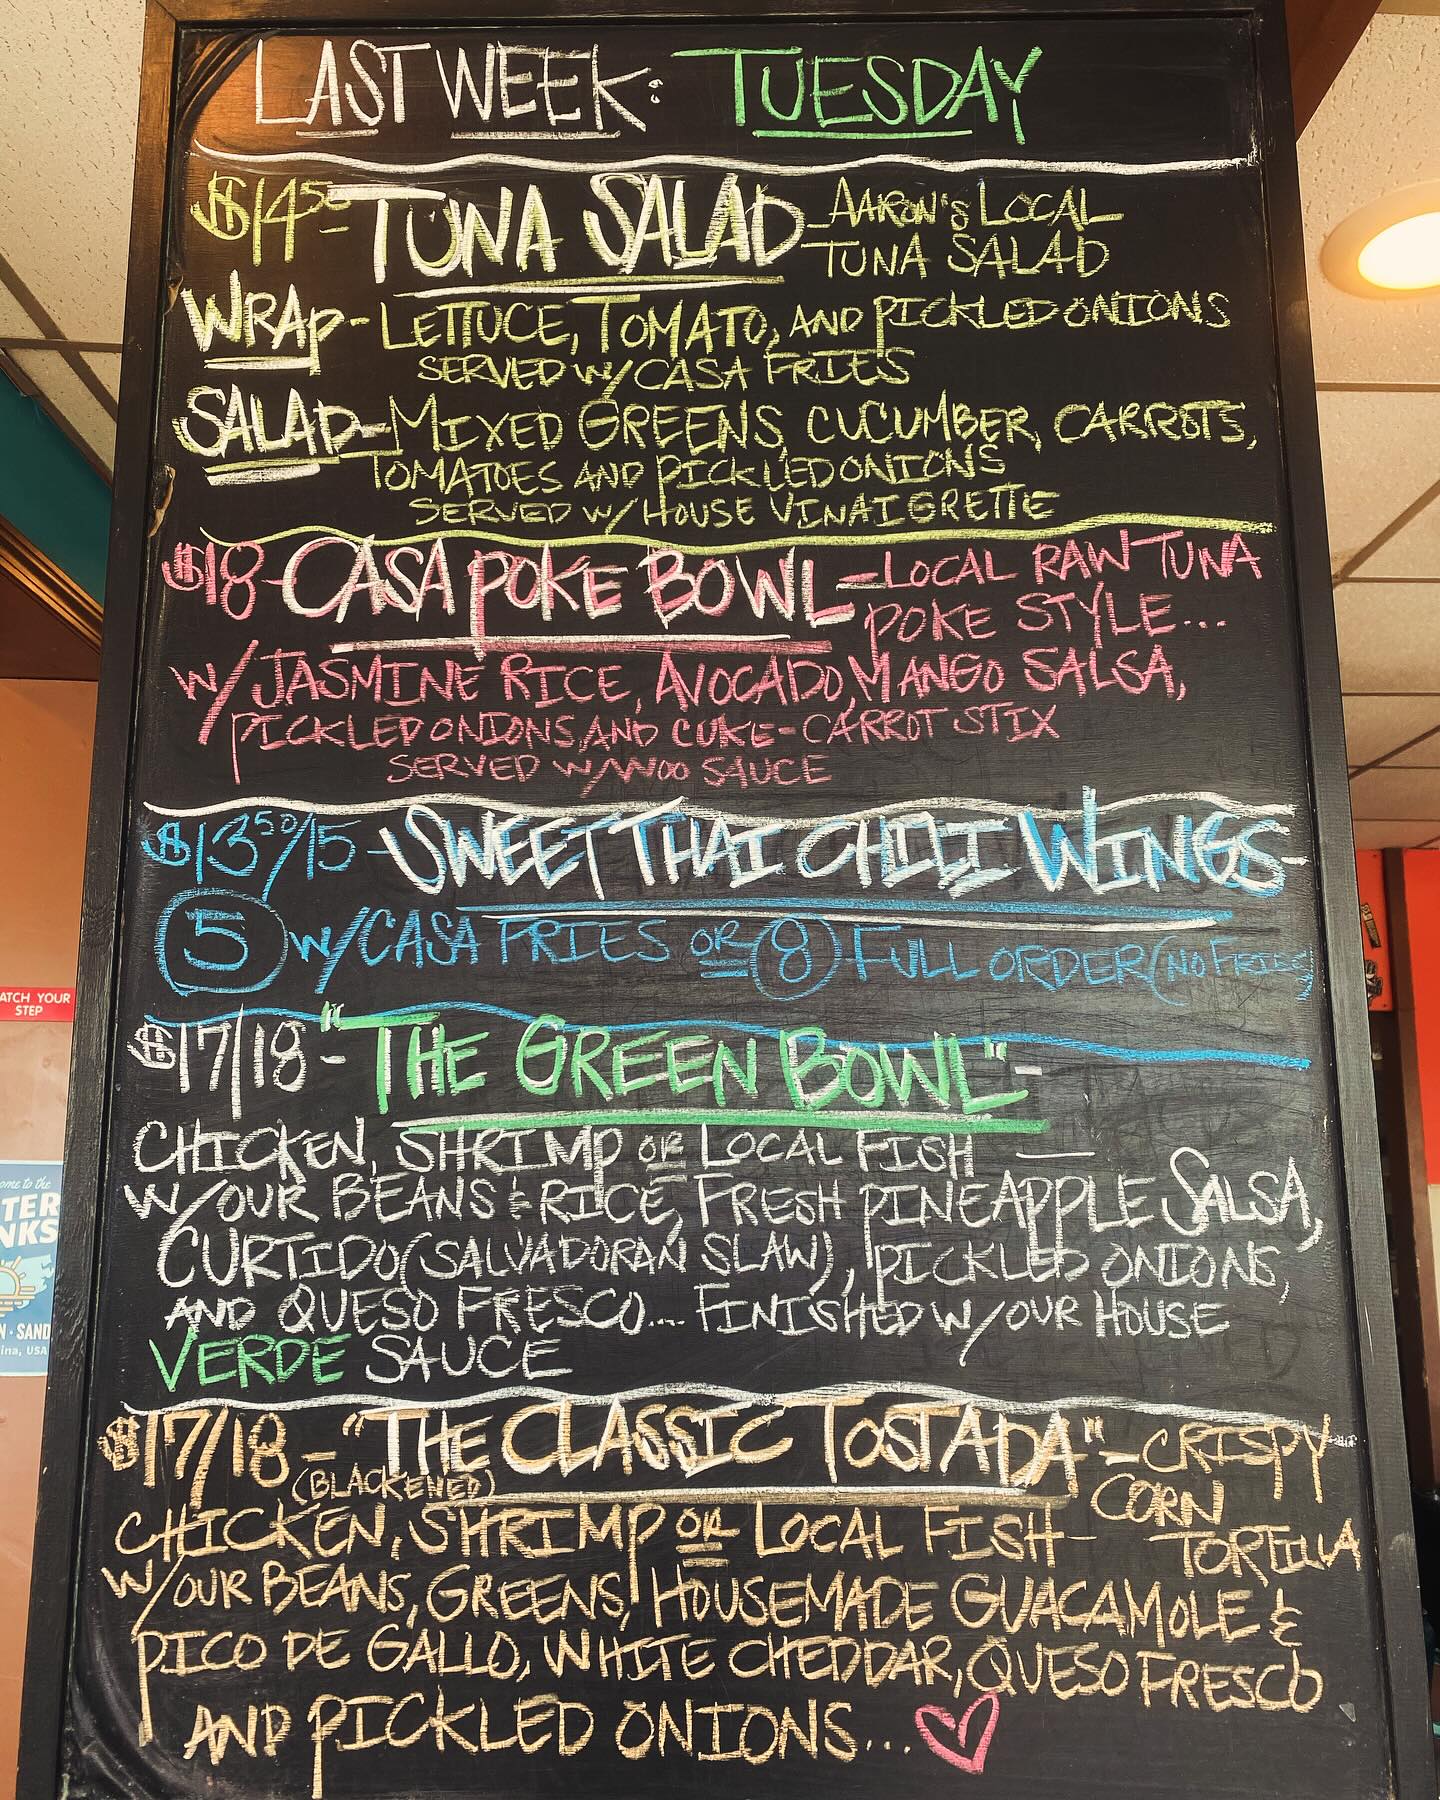 LAST WEEK: TUESDAY
$14.50- TUNA SALAD - AARON'S LOCAL
TUNA SALAD
WRAP- LETTUCE, TOMATO, AND PICKLED ONIONS
SERVED W/ CASA FRIES
SALAD- MIXED GREENS, CUCUMBER, CARROTS,
TOMATOES AND PICKLED ONIONS
SERVED W/ HOUSE VINAIGRETTE
$18- CASA POKE BOWL - LOCAL RAW TUNA
POKE STYLE...
W/ JASMINE RICE, AVOCADO, MANGO SALSA,
PICKLED ONIONS, AND CUKE-CARROT STIX
SERVED W/ WOO SAUCE
$13.50/15 - SWEET THAI CHILI WINGS-
5 W/ CASA FRIES OR 8 FULL ORDER (NO FRIES)
$17/18- "THE GREEN BOWL"-
CHICKEN, SHRIMP OR LOCAL FISH
W/ OUR BEANS & RICE, FRESH PINEAPPLE SALSA,
CURTIDO (SALVADORAN SLAW), PICKLED ONIONS,
AND QUESO FRESCO.... FINISHED W/ OUR HOUSE
VERDE SAUCE
$17/18 - "THE CLASSIC TOSTADA" - CRISPY
CORN
TORTILLA
(BLACKENED)
CHICKEN, SHRIMP OR LOCAL FISH-
W/ OUR BEANS, GREENS, HOUSEMADE GUACAMOLE &
PICO DE GALLO, WHITE CHEDDAR, QUESO FRESCO
AND PICKLED ONIONS...
ATCH YOUR
STEP
ome to the
TER
NKS
N · SAND
ina, USA